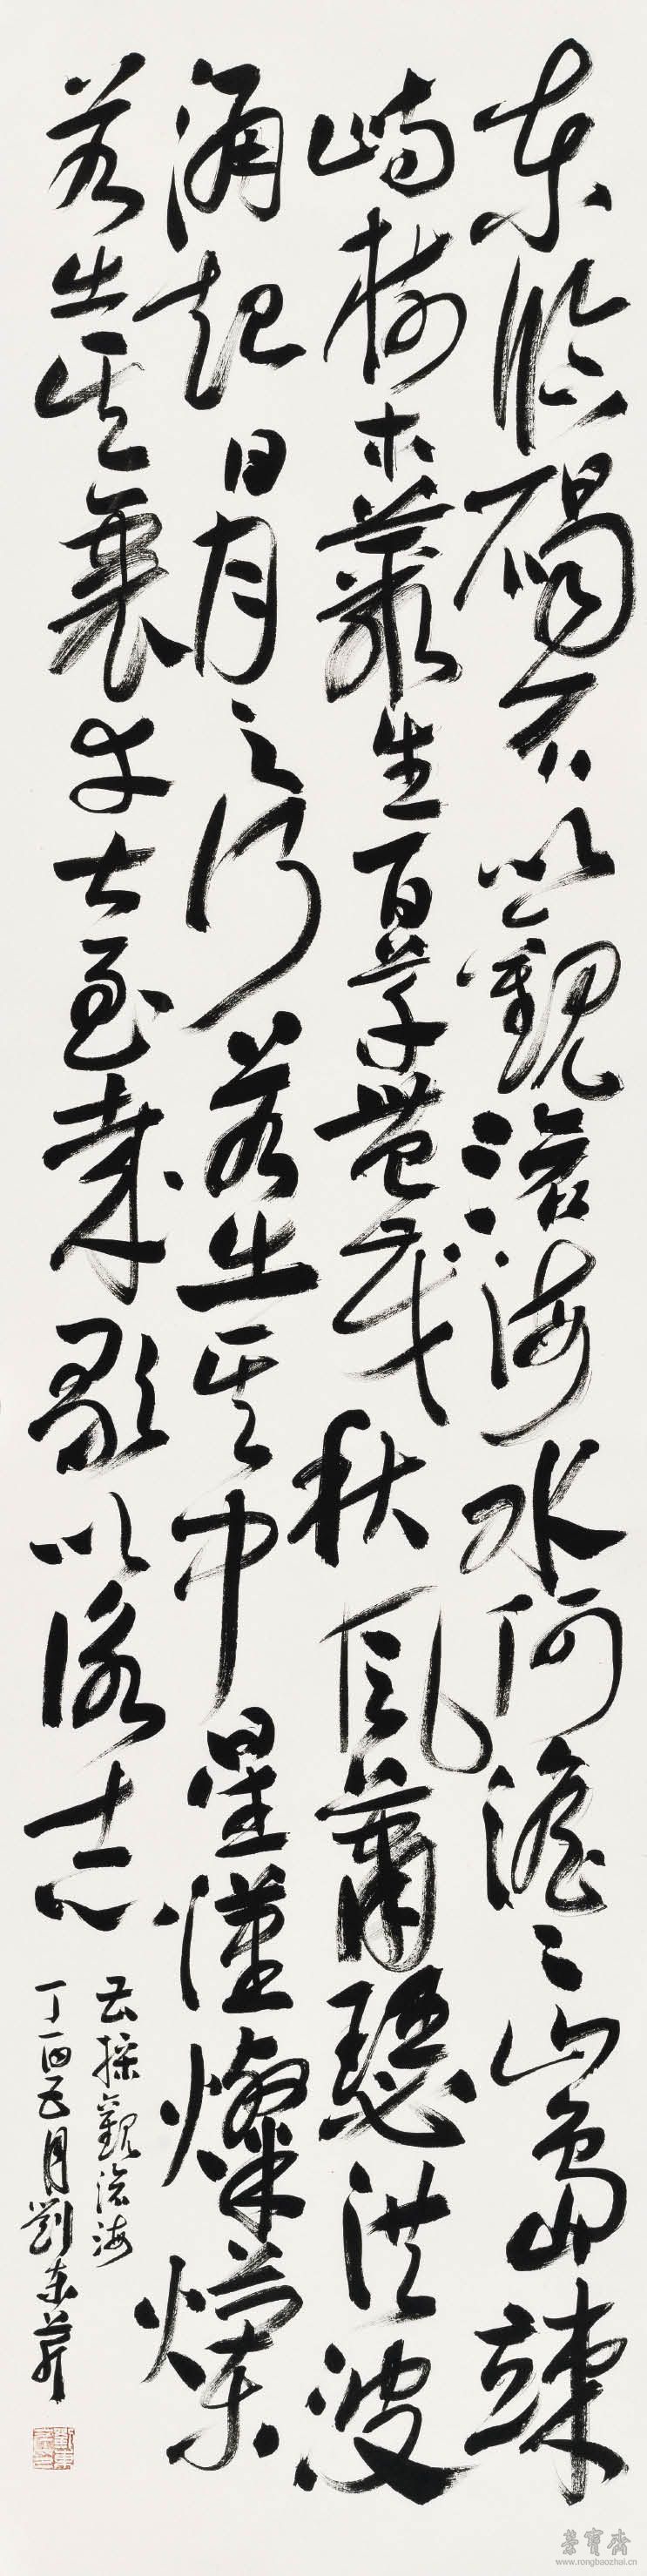 東臨碣石以觀滄海水何澹〻山島竦
峙樹木叢生百草豐茂秋風蕭瑟洪波
涌起日月之行若出其中星漢燦爛
若出其裏幸甚至哉歌以詠志
曹操觀滄海
丁酉五月劉東芹
榮寶齋
www.rongbaozhai.cn